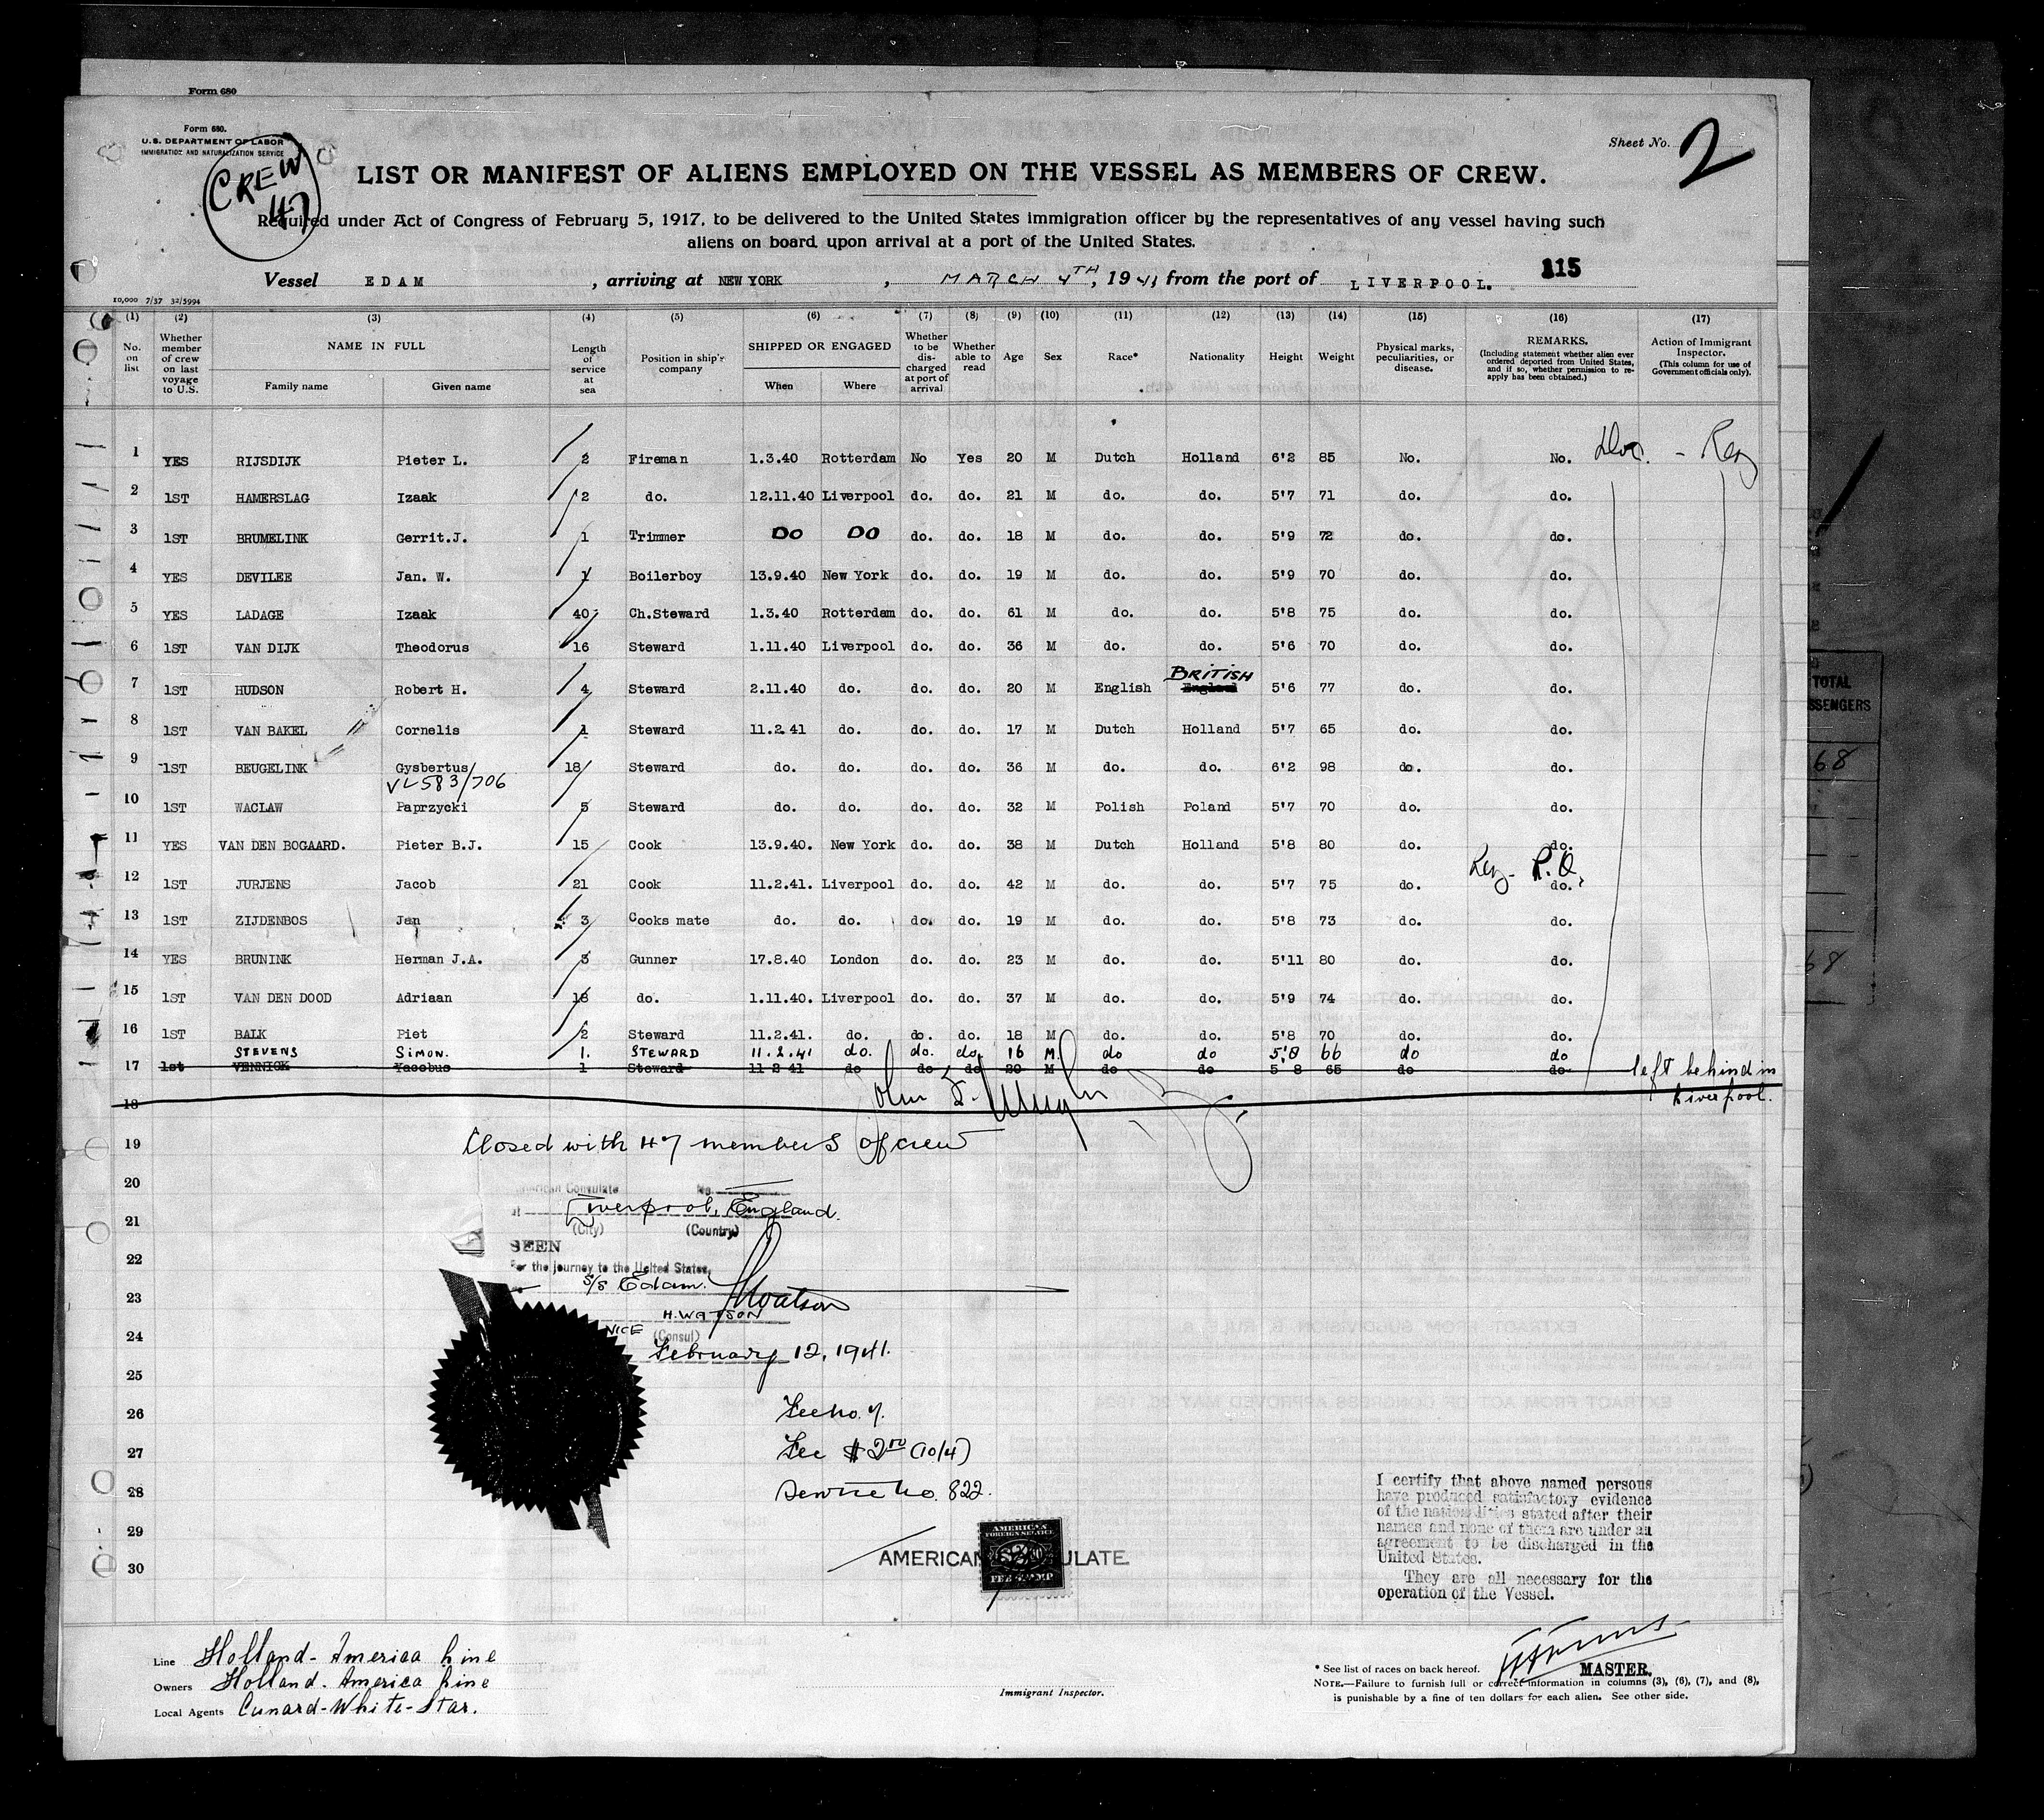 Form 680
Form 680.
U.S. DEPARTMENT OF LABOR
IMMIGRATION AND NATURALIZATION SERVICE
CREW
47
Sheet No. 2
LIST OR MANIFEST OF ALIENS EMPLOYED ON THE VESSEL AS MEMBERS OF CREW.
Required under Act of Congress of February 5, 1917, to be delivered to the United States immigration officer by the representatives of any vessel having such
aliens on board upon arrival at a port of the United States.
Vessel EDAM, arriving at NEW YORK, MARCH 4TH, 1941 from the port of LIVERPOOL. 115
10,000 7/37 32/5994
(1) (2) (3) (4) (5) (6) (7) (8) (9) (10) (11) (12) (13) (14) (15) (16) (17)
No. on list
Whether member of crew on last voyage to U.S.
NAME IN FULL
Family name
Given name
Length of service at sea
Position in ship's company
SHIPPED OR ENGAGED
When
Where
Whether to be discharged at port of arrival
Whether able to read
Age
Sex
Race*
Nationality
Height
Weight
Physical marks, peculiarities, or disease.
REMARKS.
(Including statement whether alien ever ordered deported from United States, and if so, whether permission to reapply has been obtained.)
Action of Immigrant Inspector.
(This column for use of Government officials only).
1 YES RIJSDIJK Pieter L. 2 Fireman 1.3.40 Rotterdam No Yes 20 M Dutch Holland 6'2 85 No. No.
2 1ST HAMERSLAG Izaak 2 do. 12.11.40 Liverpool do. do. 21 M do. do. 5'7 71 do. do.
3 1ST BRUMELINK Gerrit.J. 1 Trimmer DO DO do. do. 18 M do. do. 5'9 72 do. do.
4 YES DEVILEE Jan. W. 1 Boilerboy 13.9.40 New York do. do. 19 M do. do. 5'9 70 do. do.
5 YES LADAGE Izaak 40 Ch.Steward 1.3.40 Rotterdam do. do. 61 M do. do. 5'8 75 do. do.
6 1ST VAN DIJK Theodorus 16 Steward 1.11.40 Liverpool do. do. 36 M do. do. 5'6 70 do. do.
BRITISH
7 1ST HUDSON Robert H. 4 Steward 2.11.40 do. do. do. 20 M English England 5'6 77 do. do.
8 1ST VAN BAKEL Cornelis 1 Steward 11.2.41 do. do. do. 17 M Dutch Holland 5'7 65 do. do.
9 1ST BEUGELINK Gysbertus 18 Steward do. do. do. do. 36 M do. do. 6'2 98 do. do.
VL583/706
10 1ST WACLAW Paprzycki 5 Steward do. do. do. do. 32 M Polish Poland 5'7 70 do. do.
11 YES VAN DEN BOGAARD. Pieter B.J. 15 Cook 13.9.40. New York do. do. 38 M Dutch Holland 5'8 80 do. do.
12 1ST JURJENS Jacob 21 Cook 11.2.41. Liverpool do. do. 42 M do. do. 5'7 75 do. do.
13 1ST ZIJDENBOS Jan 3 Cooks mate do. do. do. do. 19 M do. do. 5'8 73 do. do.
14 YES BRUNINK Herman J.A. 5 Gunner 17.8.40 London do. do. 23 M do. do. 5'11 80 do. do.
15 1ST VAN DEN DOOD Adriaan 18 do. 1.11.40. Liverpool do. do. 37 M do. do. 5'9 74 do. do.
16 1ST BALK Piet 2 Steward 11.2.41. do. do. do. 18 M do. do. 5'8 70 do. do.
STEVENS SIMON. 1. STEWARD 11.2.41 do. do. do. 16 M. do do 5'8 66 do do
17 1st VENNICK Yacobus 1 Steward 11 2 41 do do do 20 M do do 5 8 65 do do left behind in
18 Liverpool.
19 Closed with 47 members of crew
20 American Consulate No.
at Liverpool, England.
21 (City) (Country)
SEEN
22 For the journey to the United States,
S/S Edam.
23 H. WATSON
24 VICE (Consul)
February 12, 1941.
25
26 Fee No. 7.
27 Fee $2.00 (10/4)
28 Service No. 822.
29
30
AMERICAN CONSULATE.
AMERICAN
FOREIGN SERVICE
FEE STAMP
I certify that above named persons
have produced satisfactory evidence
of the nationalities stated after their
names and none of them are under an
agreement to be discharged in the
United States.
They are all necessary for the
operation of the Vessel.
MASTER.
Line Holland-America Line
Owners Holland-America Line
Local Agents Cunard-White-Star.
Immigrant Inspector.
* See list of races on back hereof.
NOTE.—Failure to furnish full or correct information in columns (3), (6), (7), and (8),
is punishable by a fine of ten dollars for each alien. See other side.
TOTAL
68
68